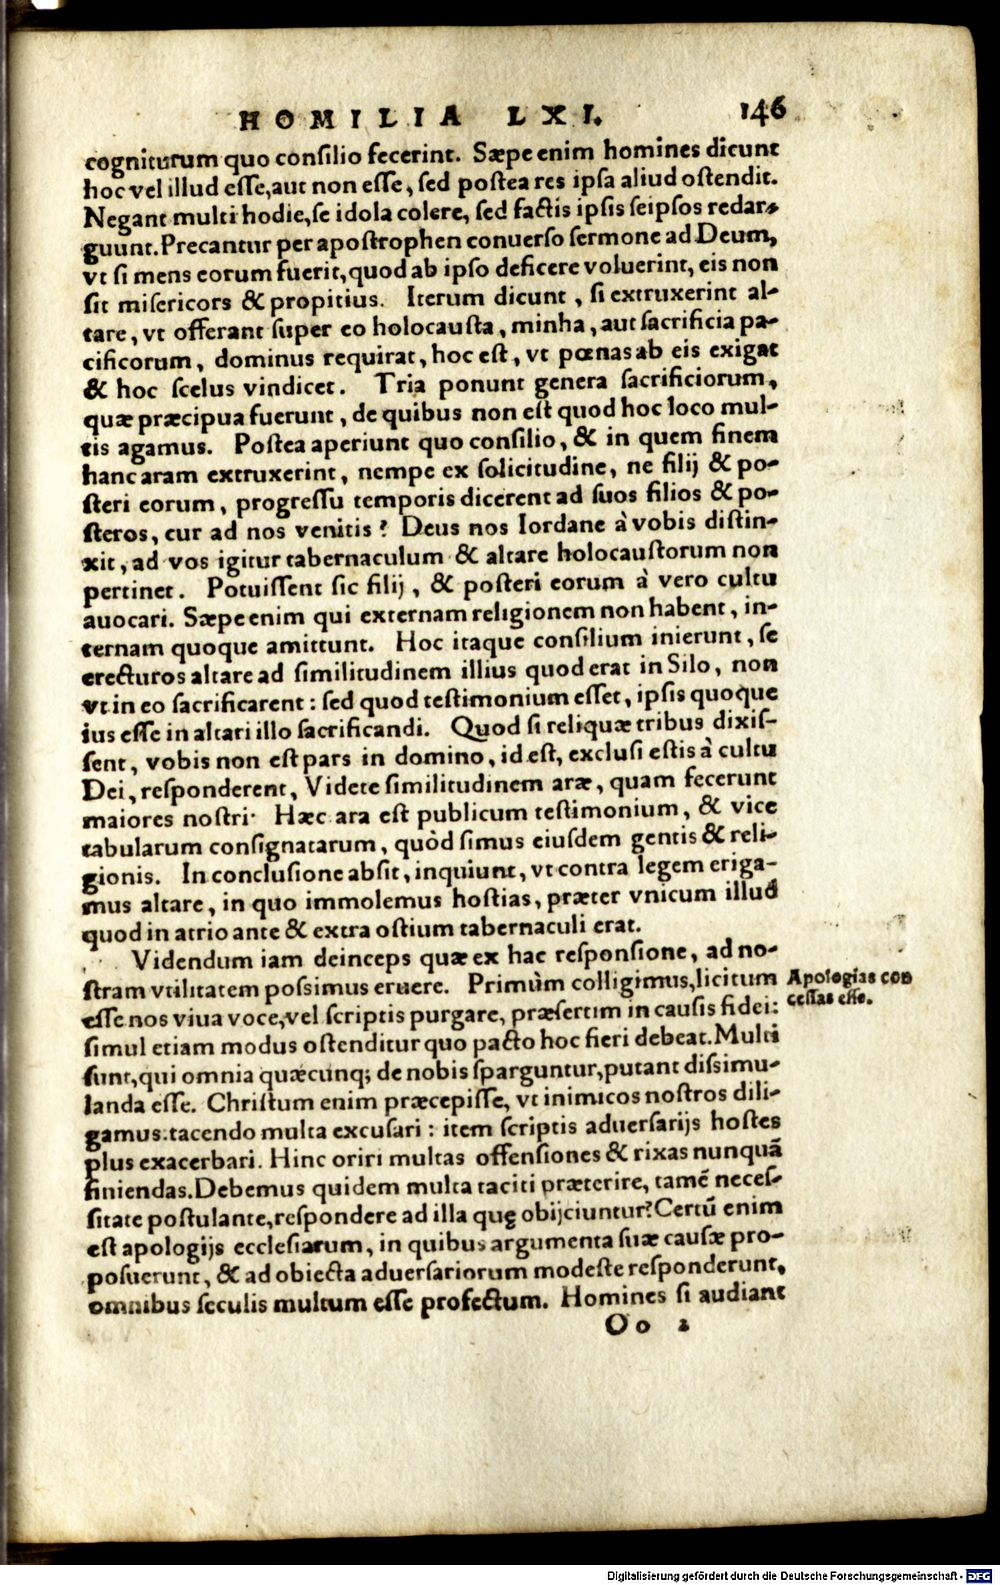 HOMILIA LXI. 146
cogniturum quo consilio fecerint. Sæpe enim homines dicunt
hoc vel illud esse, aut non esse, sed postea res ipsa aliud ostendit.
Negant multi hodie, se idola colere, sed factis ipsis seipsos redar-
guunt. Precantur per apostrophen conuerso sermone ad Deum,
vt si mens eorum fuerit, quod ab ipso deficere voluerint, eis non
sit misericors & propitius. Iterum dicunt, si extruxerint al-
tare, vt offerant super eo holocausta, minha, aut sacrificia pa-
cificorum, dominus requirat, hoc est, vt pœnas ab eis exigat
& hoc scelus vindicet. Tria ponunt genera sacrificiorum,
quæ præcipua fuerunt, de quibus non est quod hoc loco mul-
tis agamus. Postea aperiunt quo consilio, & in quem finem
hanc aram extruxerint, nempe ex solicitudine, ne filij & po-
steri eorum, progressu temporis dicerent ad suos filios & po-
steros, cur ad nos venitis? Deus nos Iordane à vobis distin-
xit, ad vos igitur tabernaculum & altare holocaustorum non
pertinet. Potuissent sic filij, & posteri eorum à vero cultu
auocari. Sæpe enim qui externam religionem non habent, in-
ternam quoque amittunt. Hoc itaque consilium inierunt, se
erecturos altare ad similitudinem illius quod erat in Silo, non
vt in eo sacrificarent: sed quod testimonium esset, ipsis quoque
ius esse in altari illo sacrificandi. Quod si reliquæ tribus dixis-
sent, vobis non est pars in domino, id est, exclusi estis à cultu
Dei, responderent, Videte similitudinem aræ, quam fecerunt
maiores nostri. Hæc ara est publicum testimonium, & vice
tabularum consignatarum, quòd simus eiusdem gentis & reli-
gionis. In conclusione absit, inquiunt, vt contra legem eriga-
mus altare, in quo immolemus hostias, præter vnicum illud
quod in atrio ante & extra ostium tabernaculi erat.
Videndum iam deinceps quæ ex hac responsione, ad no-
stram vtilitatem possimus eruere. Primùm colligimus, licitum
esse nos viua voce, vel scriptis purgare, præsertim in causis fidei:
simul etiam modus ostenditur quo pacto hoc fieri debeat. Multi
sunt, qui omnia quæcunq; de nobis sparguntur, putant dissimu-
landa esse. Christum enim præcepisse, vt inimicos nostros dili-
gamus: tacendo multa excusari: item scriptis aduersarijs hostes
plus exacerbari. Hinc oriri multas offensiones & rixas nunquã
finiendas. Debemus quidem multa taciti præterire, tamẽ neces-
sitate postulante, respondere ad illa quę obijciuntur? Certũ enim
est apologijs ecclesiarum, in quibus argumenta suæ causæ pro-
posuerunt, & ad obiecta aduersariorum modeste responderunt,
omnibus seculis multum esse profectum. Homines si audiant
Oo 2
Apologias con
cessas esse.
Digitalisierung gefördert durch die Deutsche Forschungsgemeinschaft - DFG